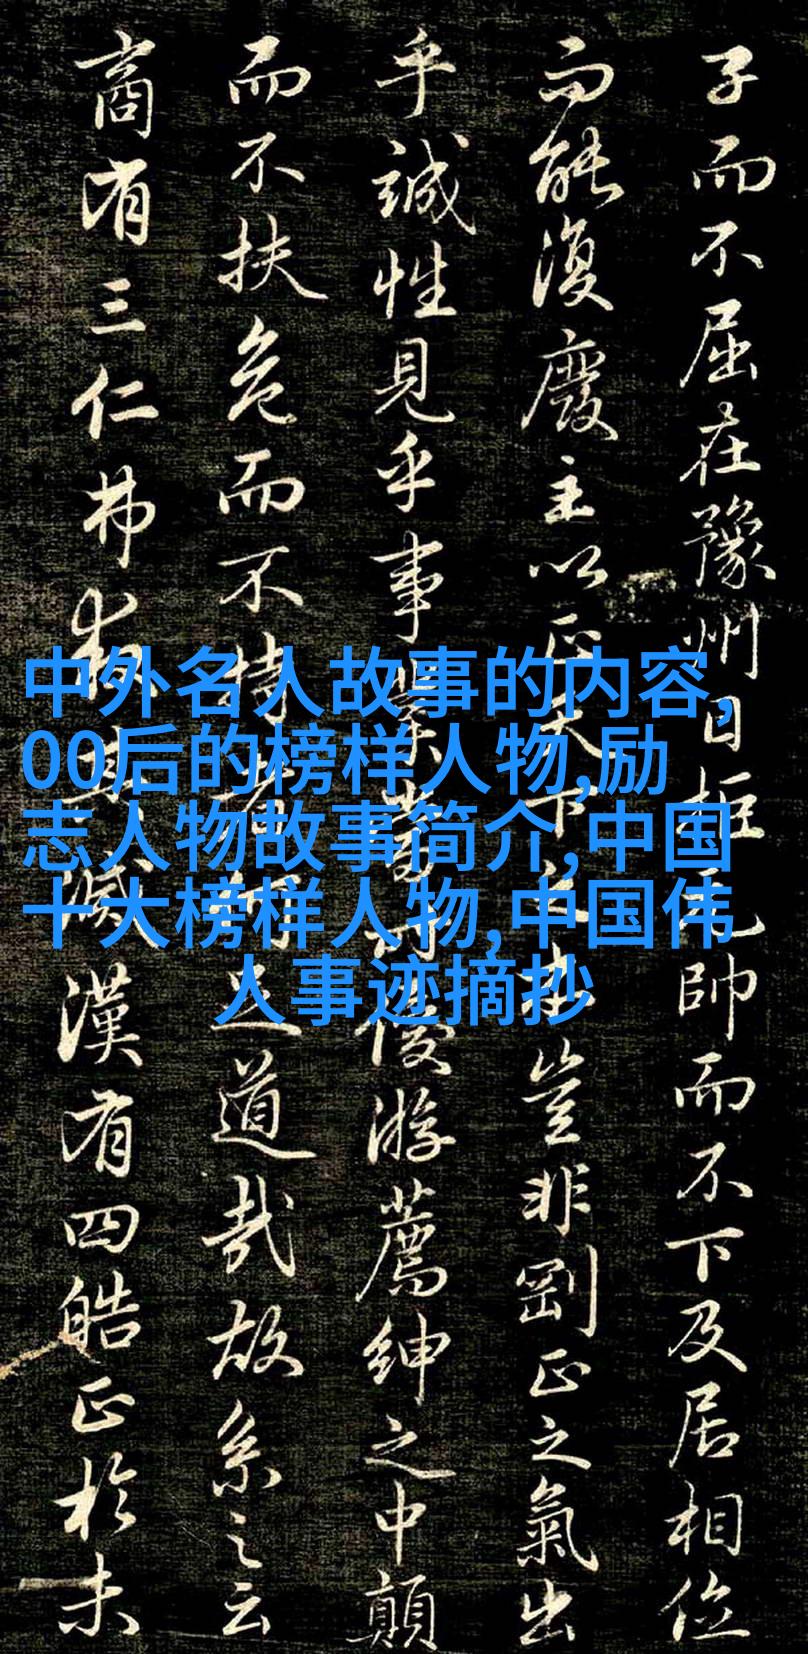 子而不屈在豫州日拒元帥而不下及居相位
而能復廢主以正天下之本豈非剛正之氣出
乎誠性見乎事業當時優游薦紳之中顛
而不扶危而不持者何足道哉故系之云
商有三仁弗救其滅漢有四皓正於未
中外名人故事的内容,
00后的榜样人物,励
志人物故事简介,中国
十大榜样人物,中国伟
人事迹摘抄